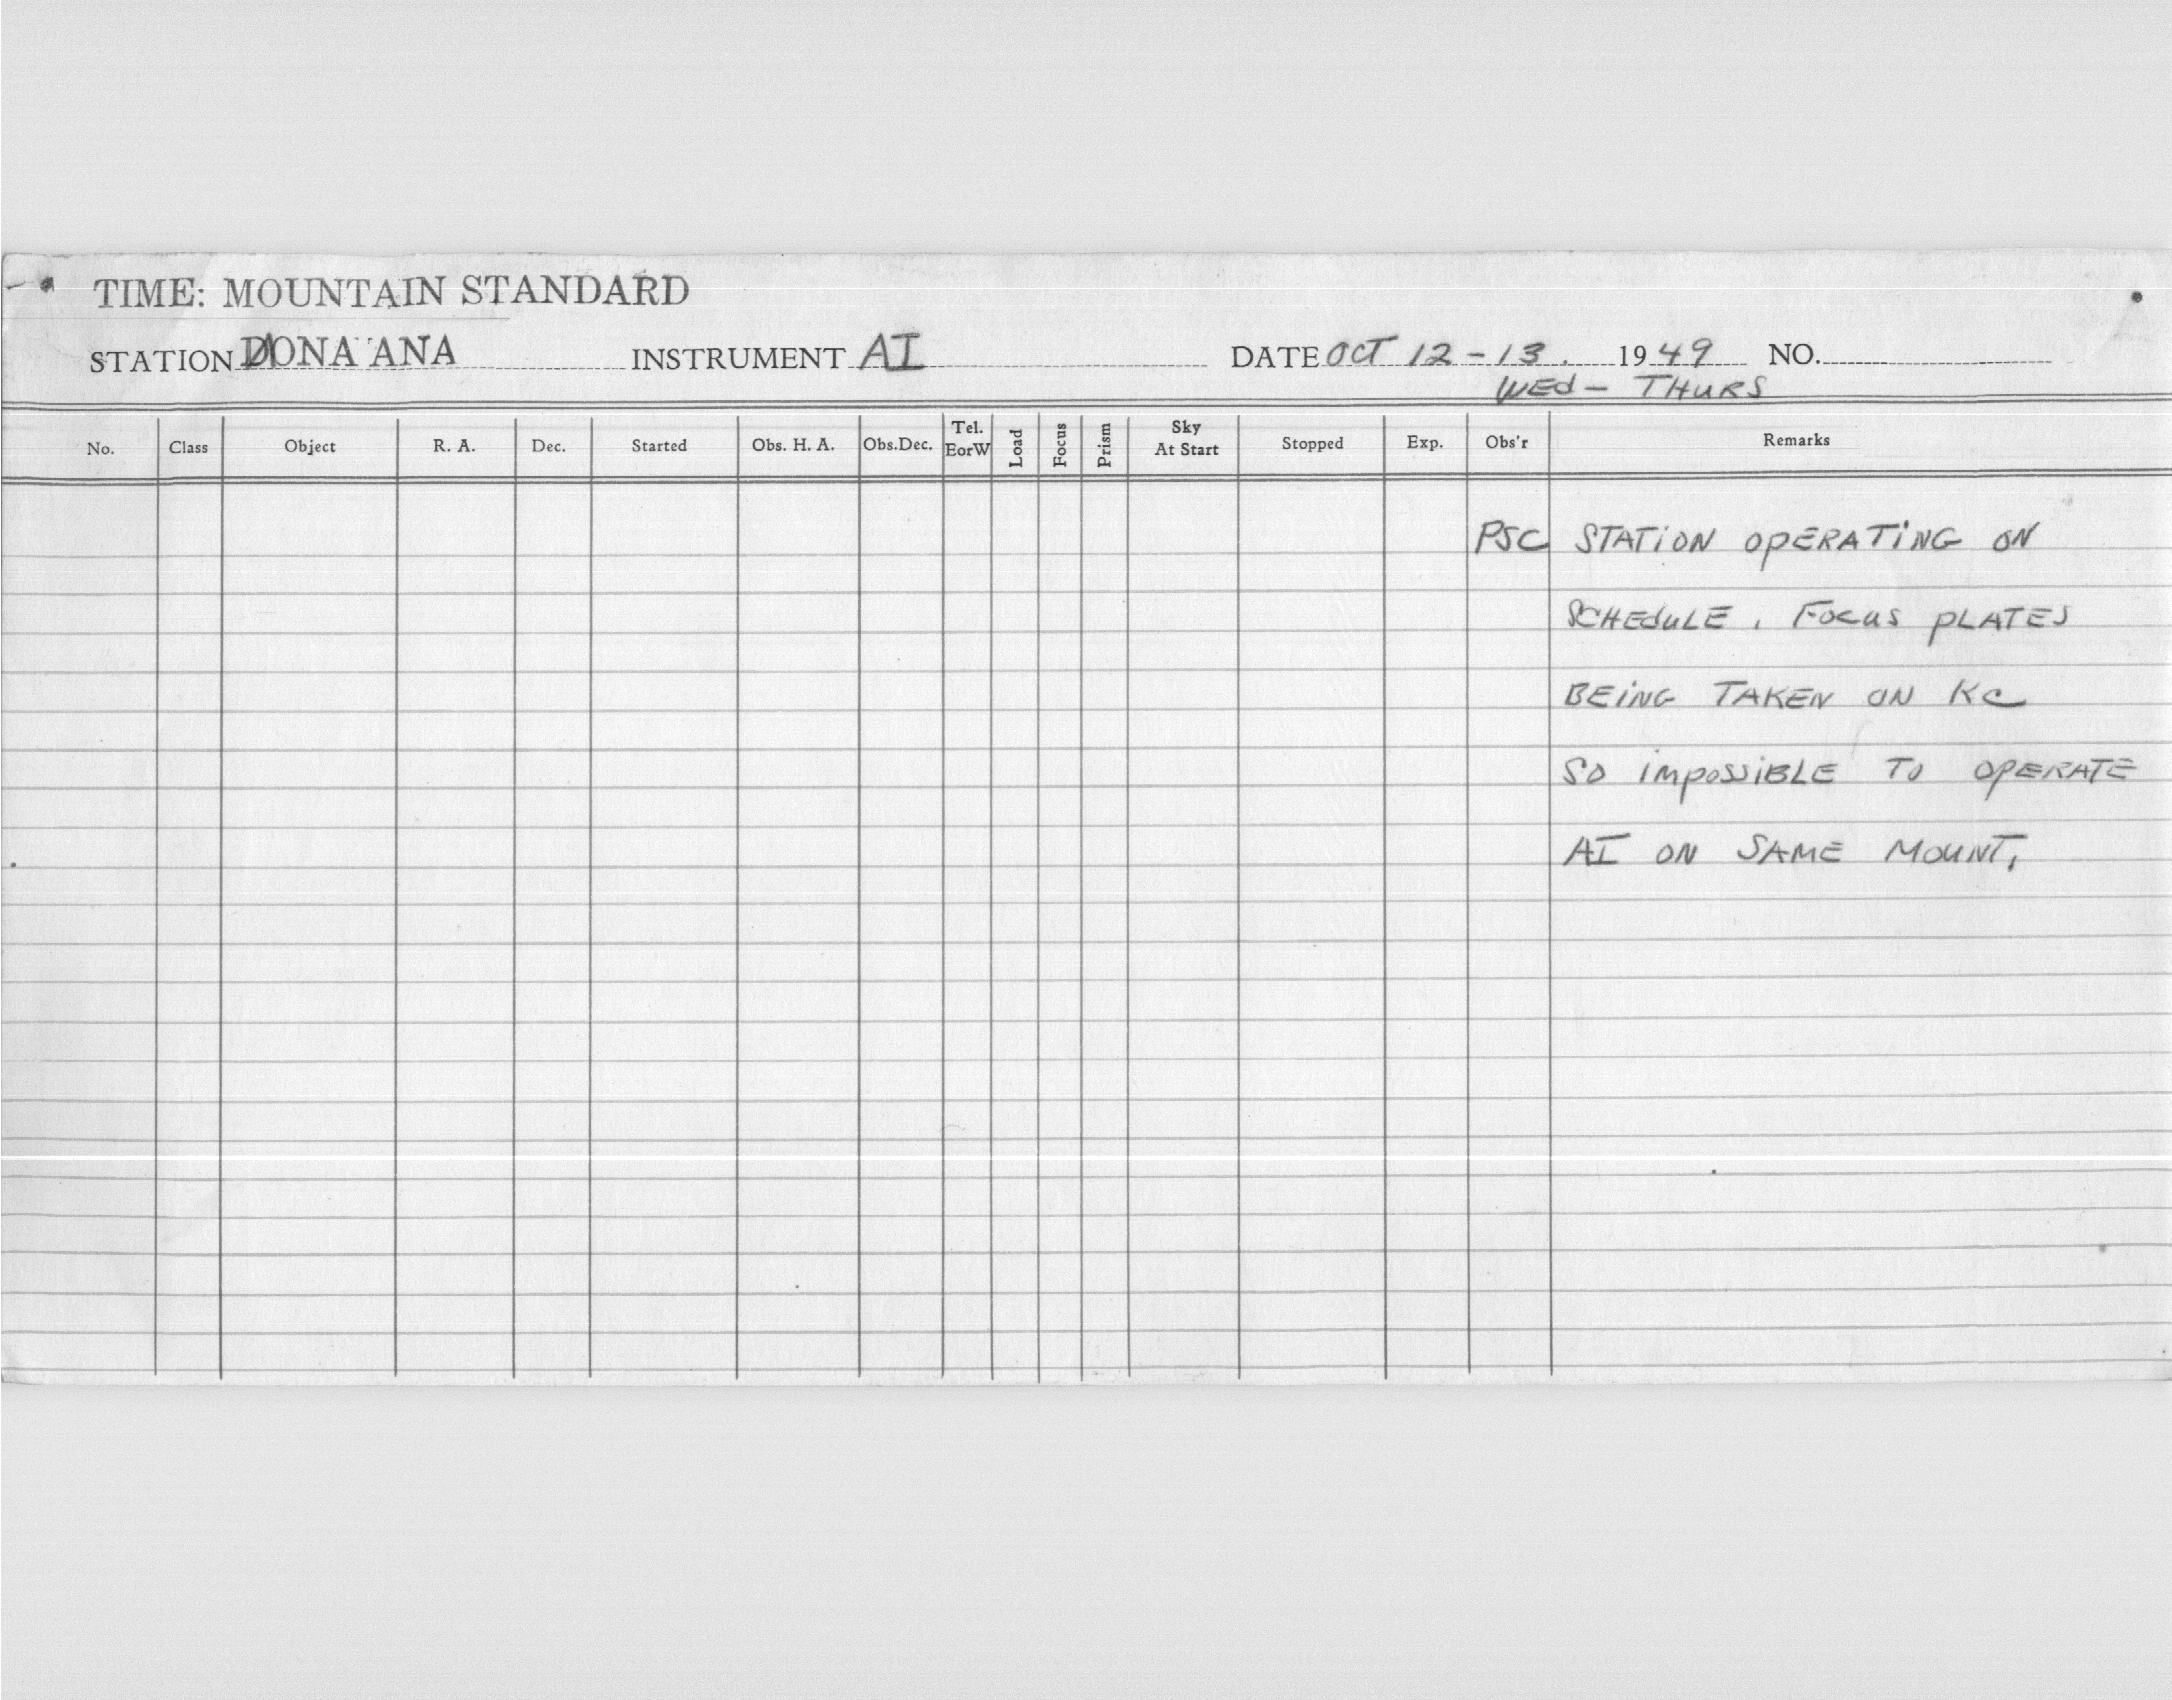 TIME: MOUNTAIN STANDARD
STATION DONA ANA INSTRUMENT AI DATE OCT 12-13. 1949 NO.
WEd - THURS
No. Class Object R. A. Dec. Started Obs. H. A. Obs.Dec. Tel. EorW Load Focus Prism Sky At Start Stopped Exp. Obs'r Remarks
PSC STATiON OPERATiNG ON
SCHEduLE. FOCuS PLATES
BEiNG TAKEN ON KC
SO iMPOSSiBLE TO OPERATE
AI ON SAME MOuNT.